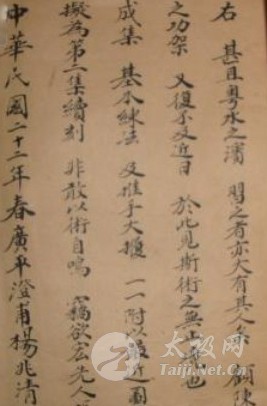 右 甚且粵水之濱 習之者亦大有其人矣 顧陳
之功架 又復不及近日 於此見斯術之無也
成集 基本練法 及推手大攦 一一附以最近圖
擬為第二集續刻 非敢以術自鳴 竊欲宏先人
中華民國二十二年春廣平澄甫楊兆清
太极网
Taiji.Net.Cn